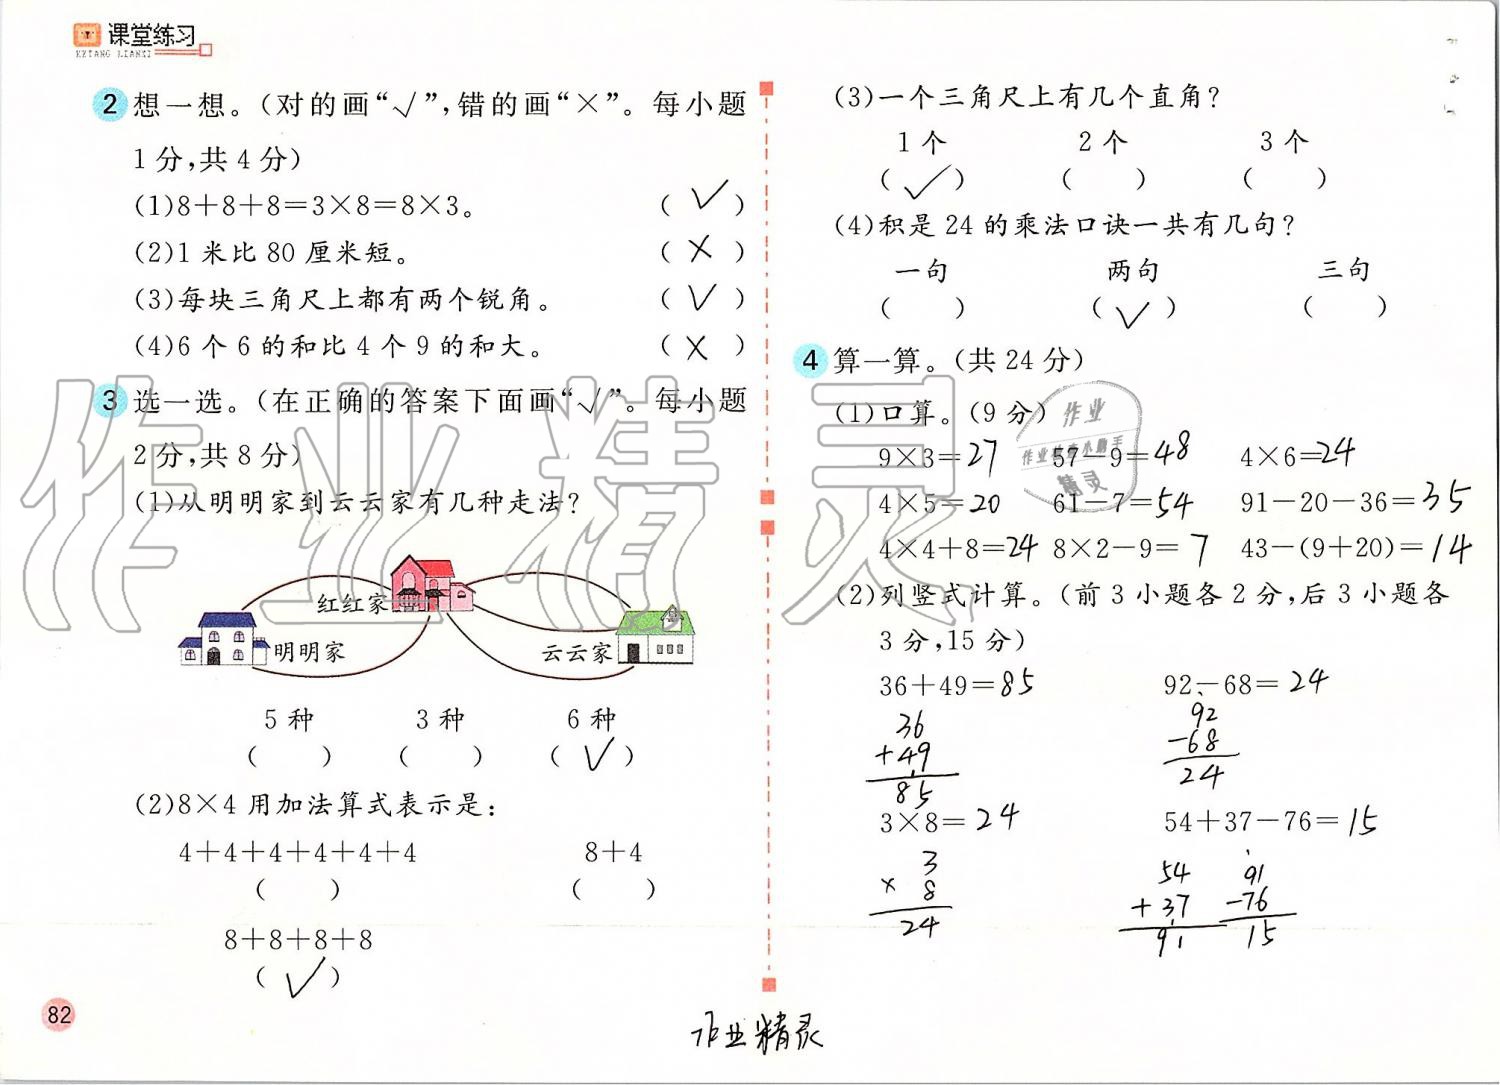 课堂练习
KETANG LIANXI
2 想一想。(对的画“√”,错的画“×”。每小题
1分,共4分)
(1)8+8+8=3×8=8×3。 ( √ )
(2)1米比80厘米短。 ( × )
(3)每块三角尺上都有两个锐角。 ( √ )
(4)6个6的和比4个9的和大。 ( × )
3 选一选。(在正确的答案下面画“√”。每小题
2分,共8分)
(1)从明明家到云云家有几种走法?
红红家
明明家
云云家
5种 3种 6种
( ) ( ) ( √ )
(2)8×4用加法算式表示是:
4+4+4+4+4+4 8+4
( ) ( )
8+8+8+8
( √ )
82
(3)一个三角尺上有几个直角?
1个 2个 3个
( √ ) ( ) ( )
(4)积是24的乘法口诀一共有几句?
一句 两句 三句
( ) ( √ ) ( )
4 算一算。(共24分)
(1)口算。(9分)
9×3=27 57-9=48 4×6=24
4×5=20 61-7=54 91-20-36=35
4×4+8=24 8×2-9=7 43-(9+20)=14
(2)列竖式计算。(前3小题各2分,后3小题各
3分,15分)
36+49=85 92-68=24
36 92
+49 -68
85 24
3×8=24 54+37-76=15
3 54 91
× 8 +37 -76
24 91 15
作业精灵
作业精灵
作业
作业检查小助手
精灵